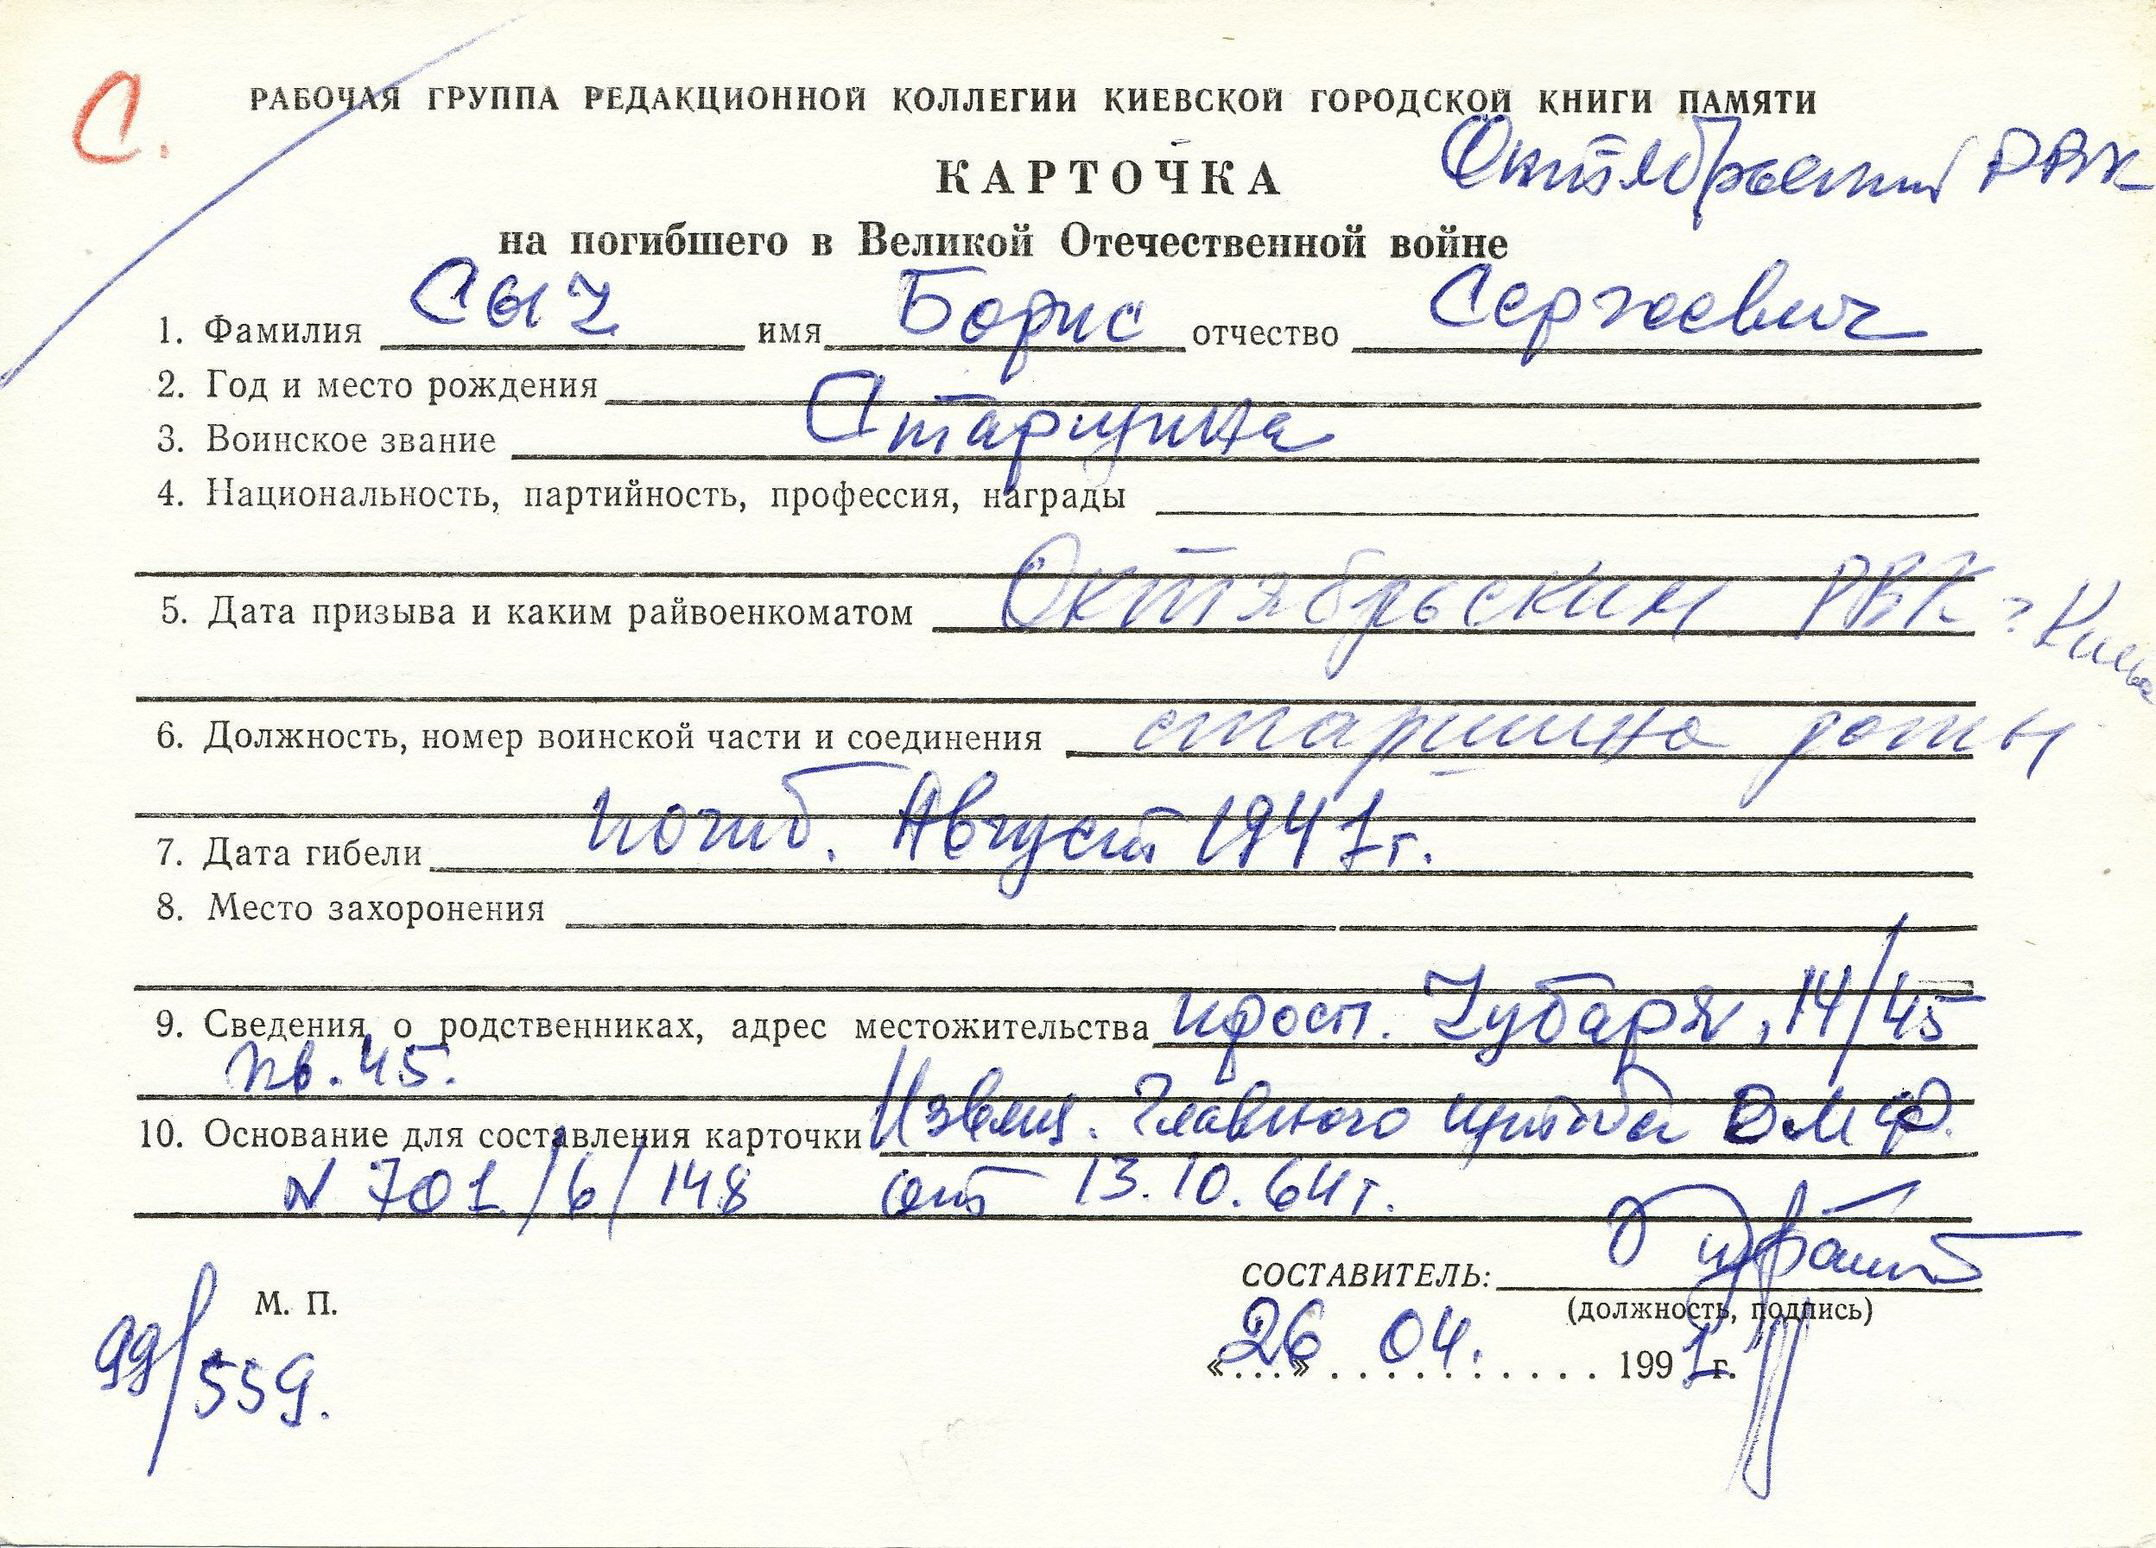 С.
РАБОЧАЯ ГРУППА РЕДАКЦИОННОЙ КОЛЛЕГИИ КИЕВСКОЙ ГОРОДСКОЙ КНИГИ ПАМЯТИ
Октябрьский РВК
КАРТОЧКА
на погибшего в Великой Отечественной войне
1. Фамилия Сыч имя Борис отчество Сергеевич
2. Год и место рождения
3. Воинское звание Старшина
4. Национальность, партийность, профессия, награды
5. Дата призыва и каким райвоенкоматом Октябрьским РВК г. Киева
6. Должность, номер воинской части и соединения старшина роты
7. Дата гибели погиб. Август 1941 г.
8. Место захоронения
9. Сведения о родственниках, адрес местожительства просп. Чубаря, 14/45
кв. 45.
10. Основание для составления карточки Извещ. Главного штаба ВМФ.
N 701/6/148 от 13.10.64 г.
СОСТАВИТЕЛЬ:
М. П.
(должность, подпись)
99/559.
«26» 04. 1991 г.